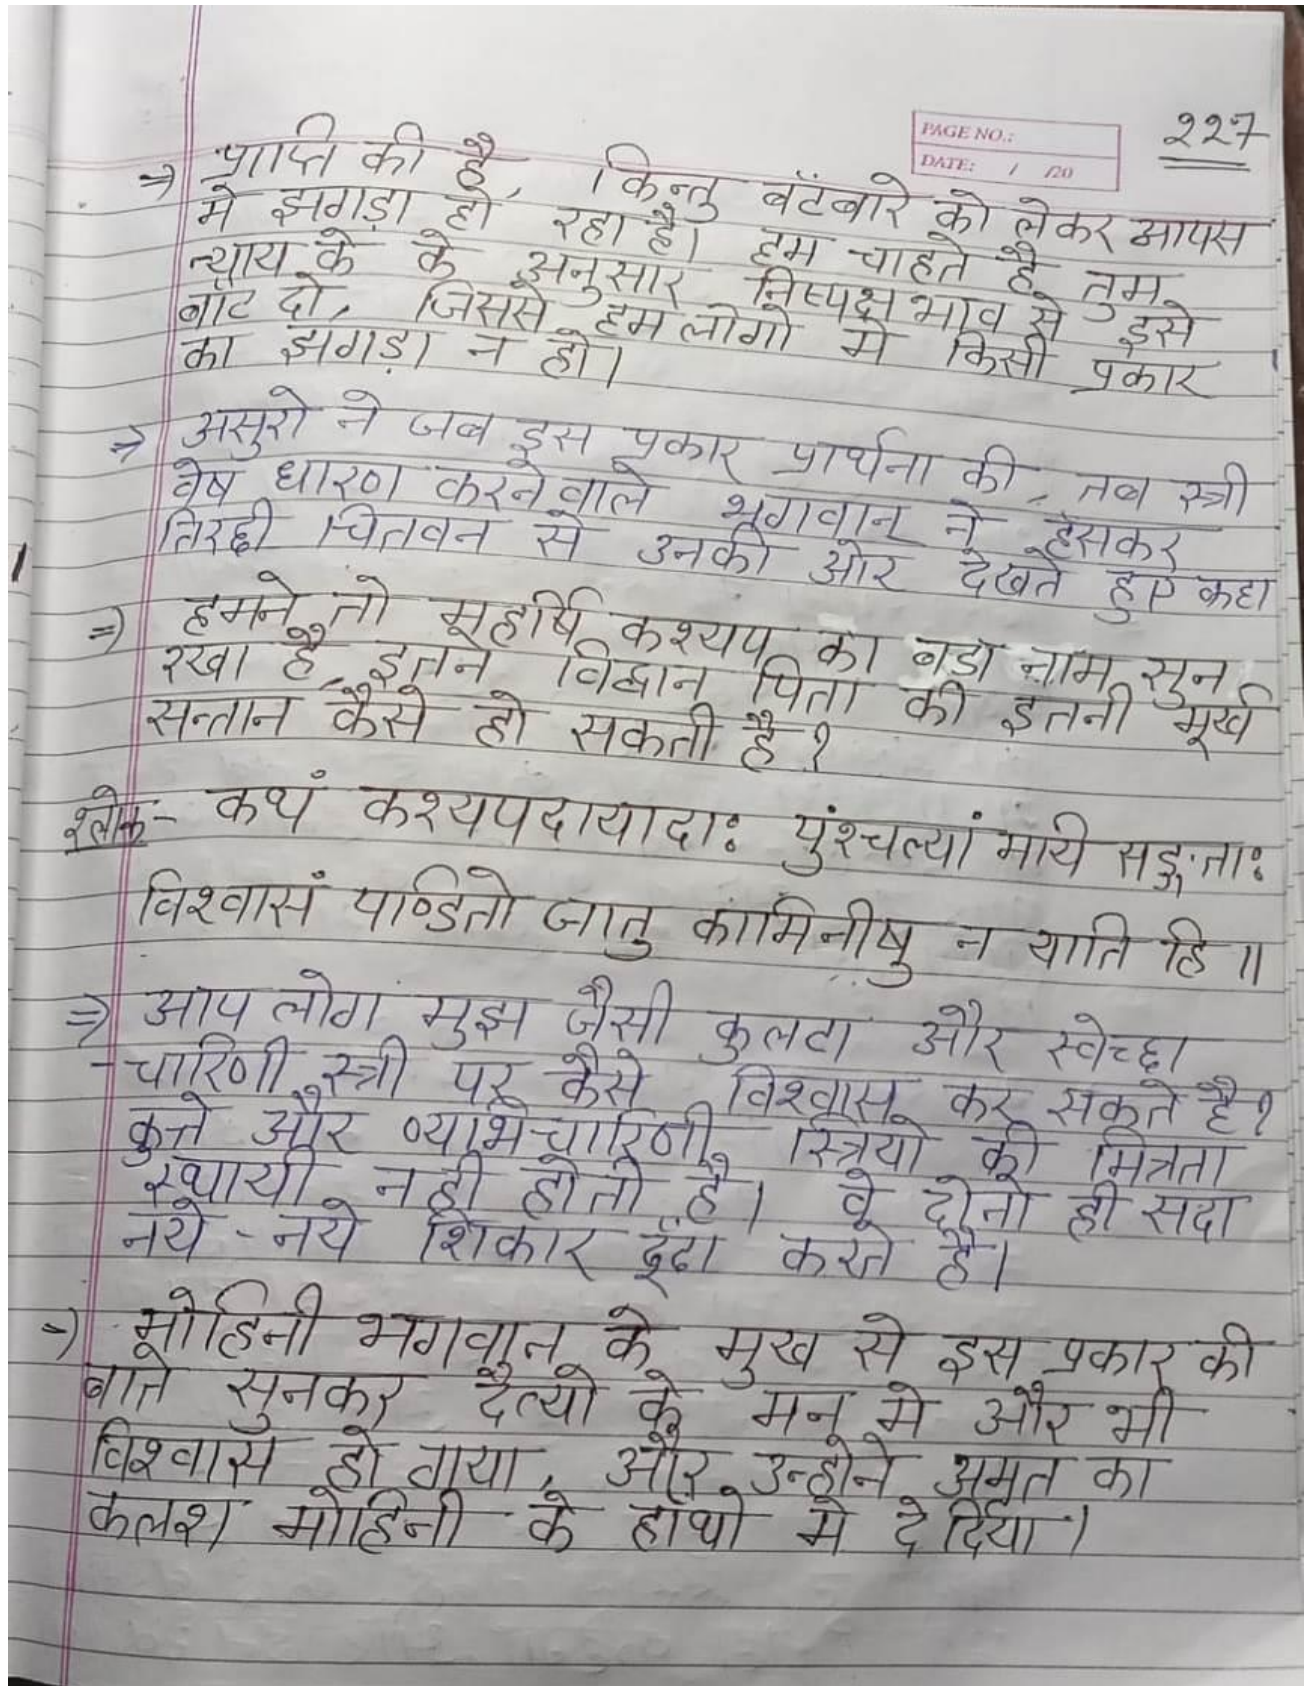 PAGE NO.:
DATE: / /20
227
⇒ प्राप्ति की है, किन्तु बँटबारे को लेकर आपस
मे झगड़ा हो रहा है। हम चाहते है तुम
न्याय के के अनुसार निष्पक्ष भाव से इसे
बाँट दो, जिससे हम लोगो मे किसी प्रकार
का झगड़ा न हो।
⇒ असुरो ने जब इस प्रकार प्रार्थना की, तब स्त्री
वेष धारण करने वाले भगवान् ने हँसकर
तिरछी चितवन से उनकी ओर देखते हुए कहा
⇒ हमने तो महर्षि कश्यप का बडा नाम सुन
रखा है, इतने विद्वान पिता की इतनी मूर्ख
सन्तान कैसे हो सकती है?
श्लोक- कथं कश्यपदायादाः पुंश्चल्यां मयि सङ्गताः
विश्वासं पण्डितो जातु कामिनीषु न याति हि ॥
⇒ आप लोग मुझ जैसी कुलटा और स्वेच्छा
-चारिणी स्त्री पर कैसे विश्वास कर सकते है?
कुत्ते और व्यभिचारिणी स्त्रियो की मित्रता
स्थायी नही होती है। वे दोनो ही सदा
नये - नये शिकार ढूँढा करते है।
⇒ मोहिनी भगवान के मुख से इस प्रकार की
बाते सुनकर दैत्यो के मन मे और भी
विश्वास हो गया, और उन्होने अमृत का
कलश मोहिनी के हाँथो मे दे दिया।